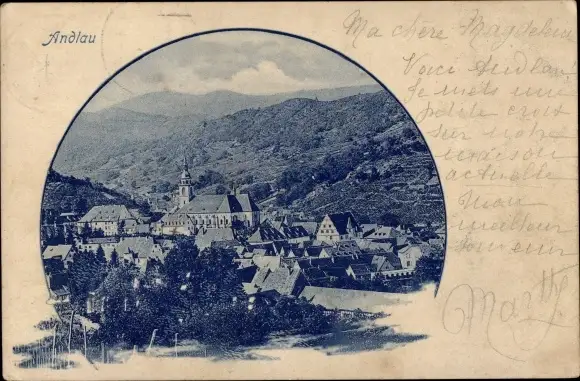 Andlau
Ma chère Magdeleine
Voici Andlau
Je mets une
petite croix
sur notre
maison
actuelle
Mon
meilleur
souvenir
Marth